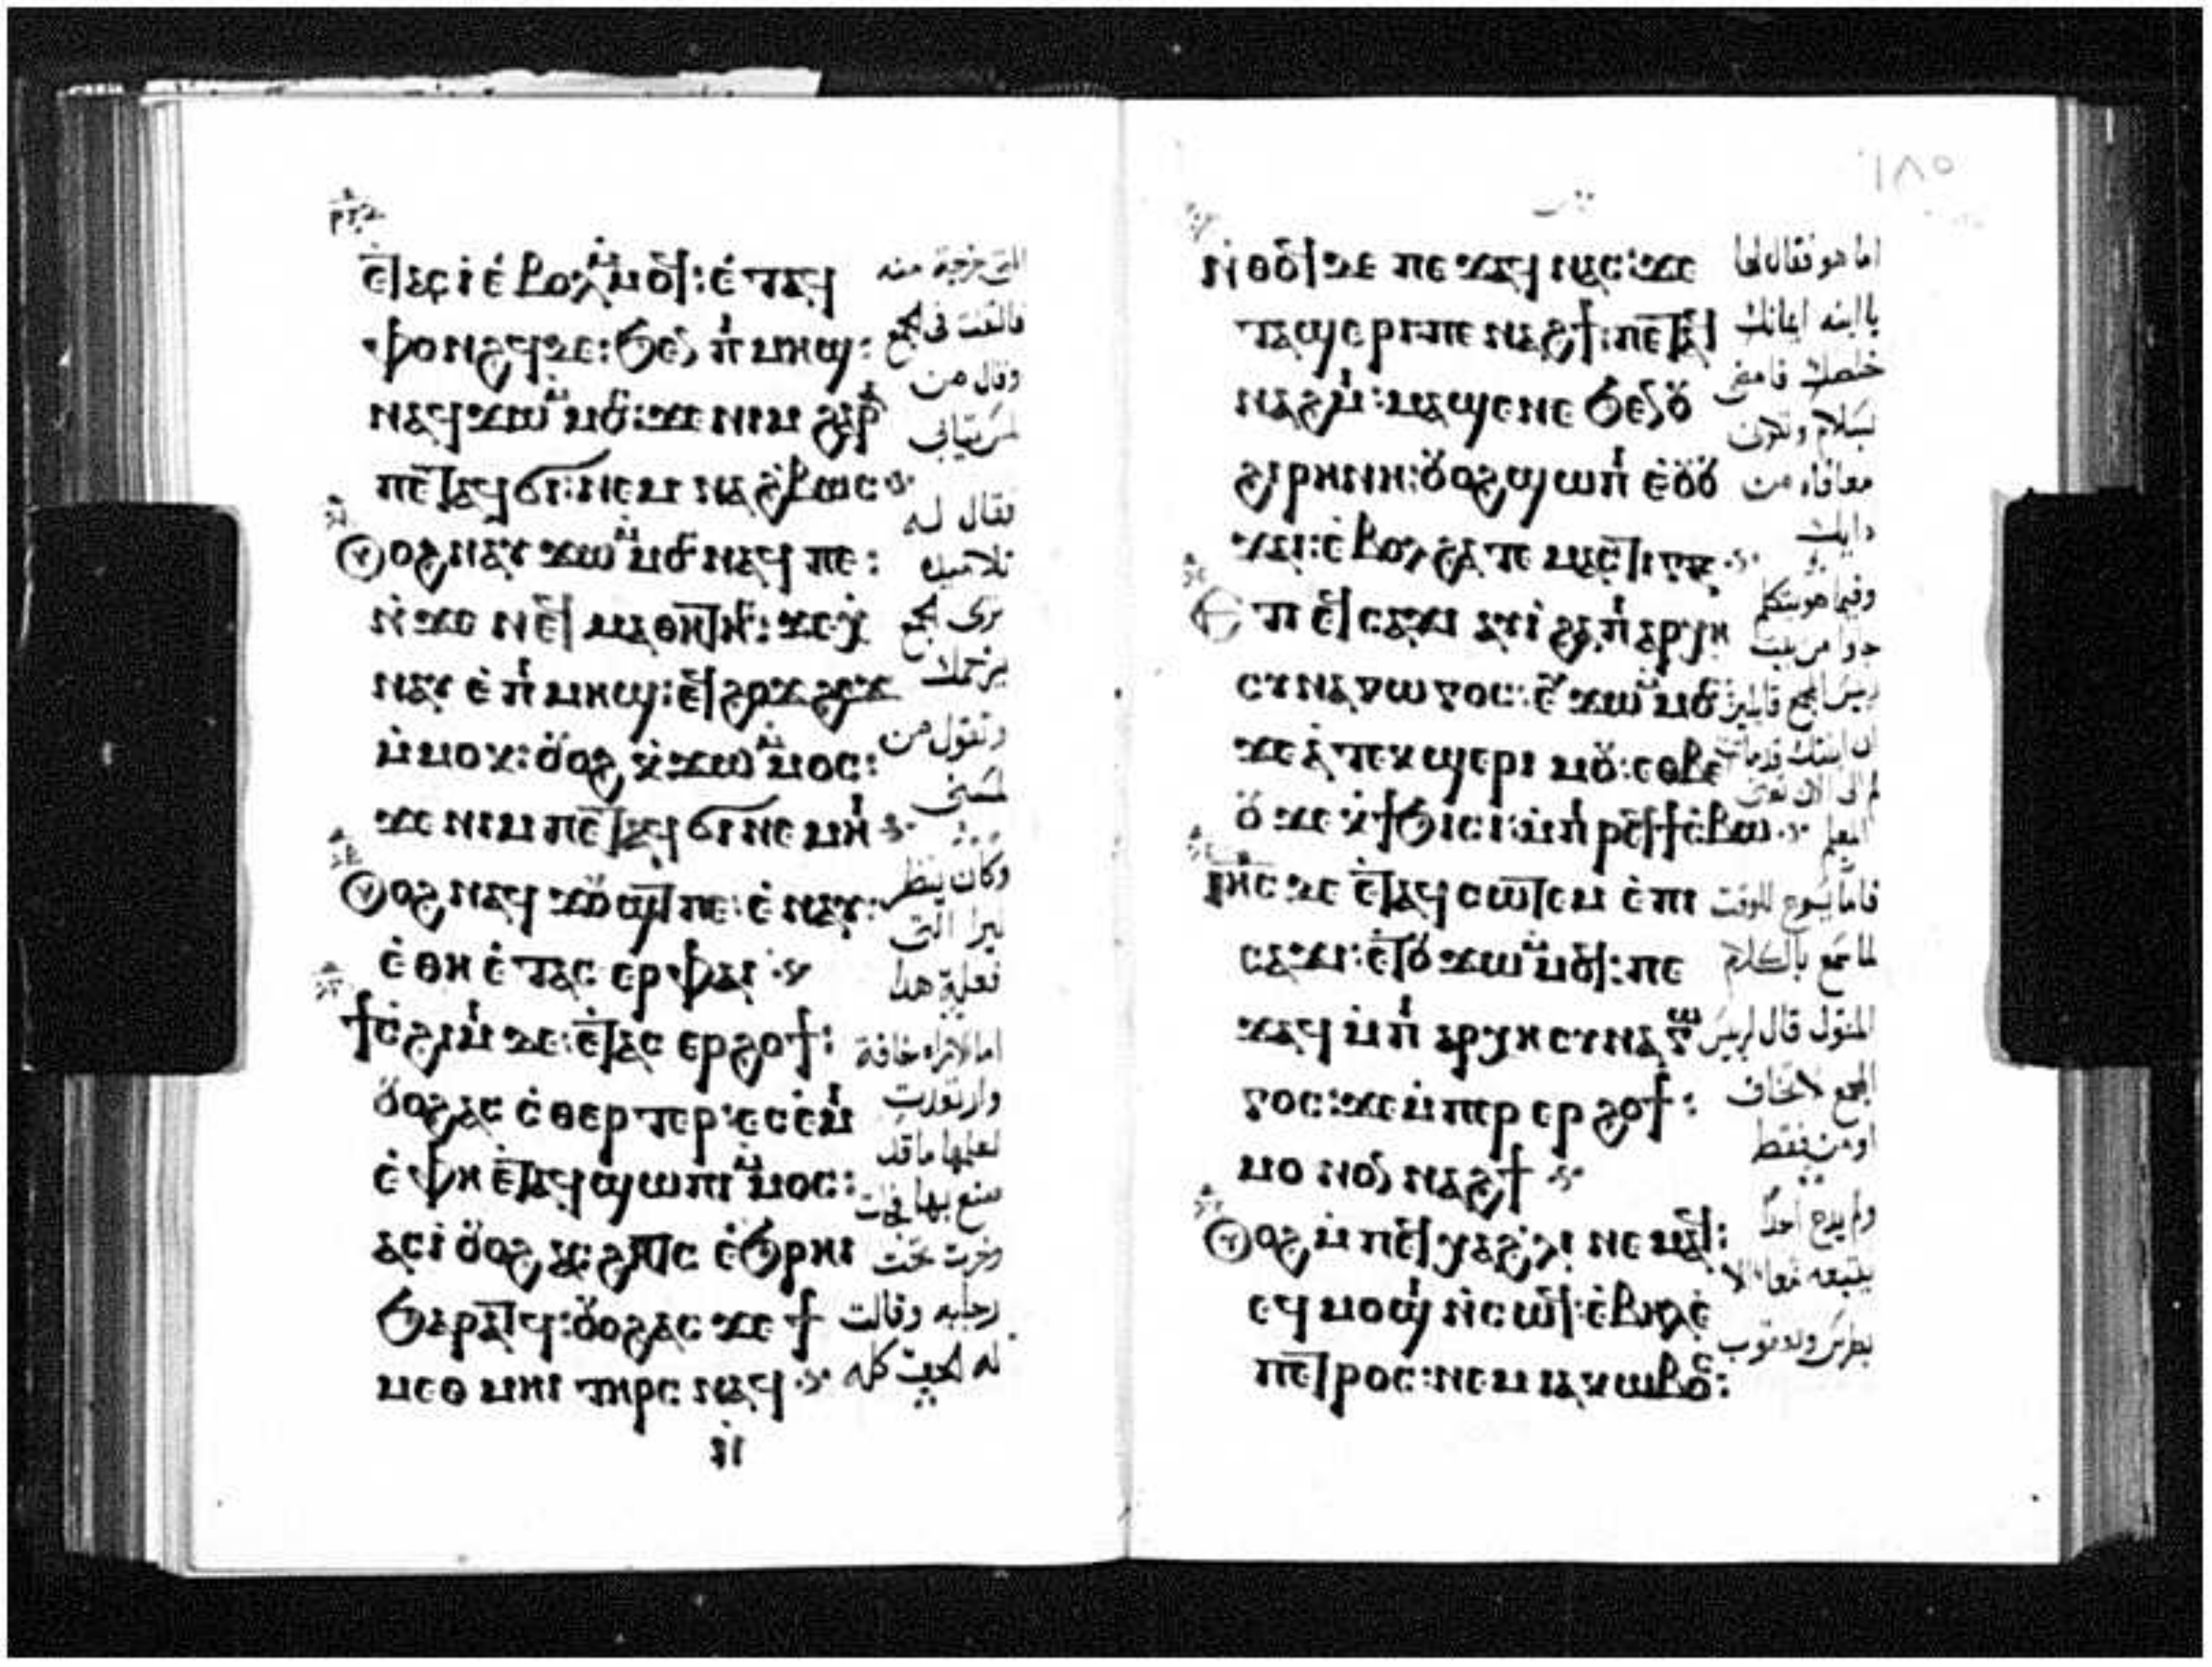 ⲉ̀ⲧⲁⲥⲓ ⲉ̀ⲃⲟⲗ ⲙ̀ⲙⲟϥ: ⲉ̀ⲧⲁϥ
ⲫⲟⲛϩϥ ⲇⲉ: ϧⲉⲛ ⲡⲓⲙⲏϣ:
ⲛⲁϥϫⲱ ⲙ̀ⲙⲟⲥ: ϫⲉ ⲛⲓⲙ ⲅⲁⲣ
ⲡⲉⲧⲁϥϭⲓ: ⲛⲉⲙ ⲛⲁϩ̀ⲃⲱⲥ
ⲟⲩⲟϩ ⲛⲁⲩϫⲱ ⲙ̀ⲙⲟⲥ ⲛⲁϥ ⲡⲉ:
ⲛ̀ϫⲉ ⲛⲉϥⲙⲁⲑⲏⲧⲏⲥ: ϫⲉ ⲭ̀
ⲛⲁⲩ ⲉ̀ⲡⲓⲙⲏϣ: ⲉϥϩⲟϫϩⲉϫ
ⲙ̀ⲙⲟⲕ: ⲟⲩⲟϩ ⲭ̀ϫⲱ ⲙ̀ⲙⲟⲥ:
ϫⲉ ⲛⲓⲙ ⲡⲉⲧⲁϥϭⲓ ⲛⲉⲙⲏⲓ
ⲟⲩⲟϩ ⲛⲁϥϫⲟⲩϣⲧ ⲡⲉ: ⲉ̀ⲛⲁⲩ:
ⲉ̀ⲑⲏ ⲉ̀ⲧⲁⲥ ⲉⲣ ⲫⲁⲓ
ϯⲥ̀ϩⲓⲙⲓ ⲇⲉ: ⲉ̀ⲧⲁⲥ ⲉⲣϩⲟϯ:
ⲟⲩⲟϩ ⲁⲥ ⲥ̀ⲑⲉⲣⲧⲉⲣ: ⲉⲥⲉ̀ⲙⲓ
ⲉ̀ⲫⲏ ⲉ̀ⲧⲁϥϣⲱⲡⲓ ⲙ̀ⲙⲟⲥ:
ⲁⲥⲓ̀ ⲟⲩⲟϩ ⲁⲥϩⲓⲧⲥ ⲉ̀ϧⲣⲏⲓ
ϧⲁⲣⲁⲧϥ: ⲟⲩⲟϩ ⲁⲥϫⲉ ϯ
ⲙⲉⲑⲙⲏⲓ ⲧⲏⲣⲥ ⲛⲁϥ
ⲛ̀
التى خرجة منه
فالتفت فى الجمع
وقال من
فقال له
تلاميده
ترى الجمع
يزحمك
وتقول من
لمسنى
وكان ينظر
ليرا التى
فعلية هدا
اما الامراه خافة
وارتعدرت
لعلمها ماقد
صنع بها فجات
وخرت تحت
رجليه وقالت
له الحق كله
١٨٥
ⲛ̀ⲑⲟϥ ⲇⲉ ⲡⲉϫⲁϥ ⲛⲁⲥ: ϫⲉ
ⲧⲁϣⲉⲣⲓ ⲡⲉⲛⲁϩϯ: ⲡⲉⲧⲁϥ
ⲛⲁϩⲙⲓ: ⲙⲁϣⲉⲛⲉ ϧⲉⲛ ⲟⲩ
ϩⲓⲣⲏⲛⲏ: ⲟⲩⲟϩ ϣⲱⲡⲓ ⲉ̀ⲟⲩⲟ
ϫⲁⲓ: ⲉ̀ⲃⲟⲗ ϩⲁ ⲧⲉ ⲙⲁⲥⲧⲓⲅⲝ
ⲉⲧⲓ ⲉϥⲥⲁϫⲓ ⲁⲩⲓ̀ ϩⲁ ⲡⲓⲁⲣⲭⲏ
ⲥⲩⲛⲁⲅⲱⲅⲟⲥ: ⲉⲩϫⲱ ⲙ̀ⲙⲟⲥ
ϫⲉ ⲁ̀ ⲧⲉⲕϣⲉⲣⲓ ⲙⲟⲩ: ⲉⲑⲃⲉ
ⲟⲩ ϫⲉ ⲭ̀ϯϧⲓⲥⲓ: ⲙ̀ⲡⲓⲣⲉϥϯⲥ̀ⲃⲱ
ⲓⲏⲥ ⲇⲉ ⲉ̀ⲧⲁϥⲥⲱⲧⲉⲙ ⲉ̀ⲡⲓ
ⲥⲁϫⲓ: ⲉ̀ⲧⲟⲩϫⲱ ⲙ̀ⲙⲟϥ: ⲡⲉ
ϫⲁϥ ⲙ̀ⲡⲓⲁⲣⲭⲏⲥⲩⲛⲁⲅⲱ
ⲅⲟⲥ: ϫⲉ ⲙ̀ⲡⲉⲣ ⲉⲣϩⲟϯ:
ⲙⲟⲛⲟⲛ ⲛⲁϩϯ
ⲟⲩⲟϩ ⲙ̀ⲡⲉϥⲭⲁ ϩ̀ⲗⲓ ⲛⲉⲙⲁϥ:
ⲉϥⲙⲟϣⲓ ⲛ̀ⲥⲱϥ: ⲉ̀ⲃⲏⲗ ⲉ̀
ⲡⲉⲧⲣⲟⲥ: ⲛⲉⲙ ⲓⲁⲕⲱⲃⲟⲥ:
اما هو فقال لها
ياابنه ايمانك
خلصك فامضى
بسلام وتكون
معافاه من
دايك
وفيما هو يتكلم
جاوا من بيت
رييس الجمع قايلين
ان ابنتك قدماتت
المعلم
فاما يسوع للوقت
لما سمع بالكلام
المنقول قال لرييس
الجمع لاتخاف
اومن فقط
ولم يدع احدا
يتبعه معاه الا
بطرس ويعقوب